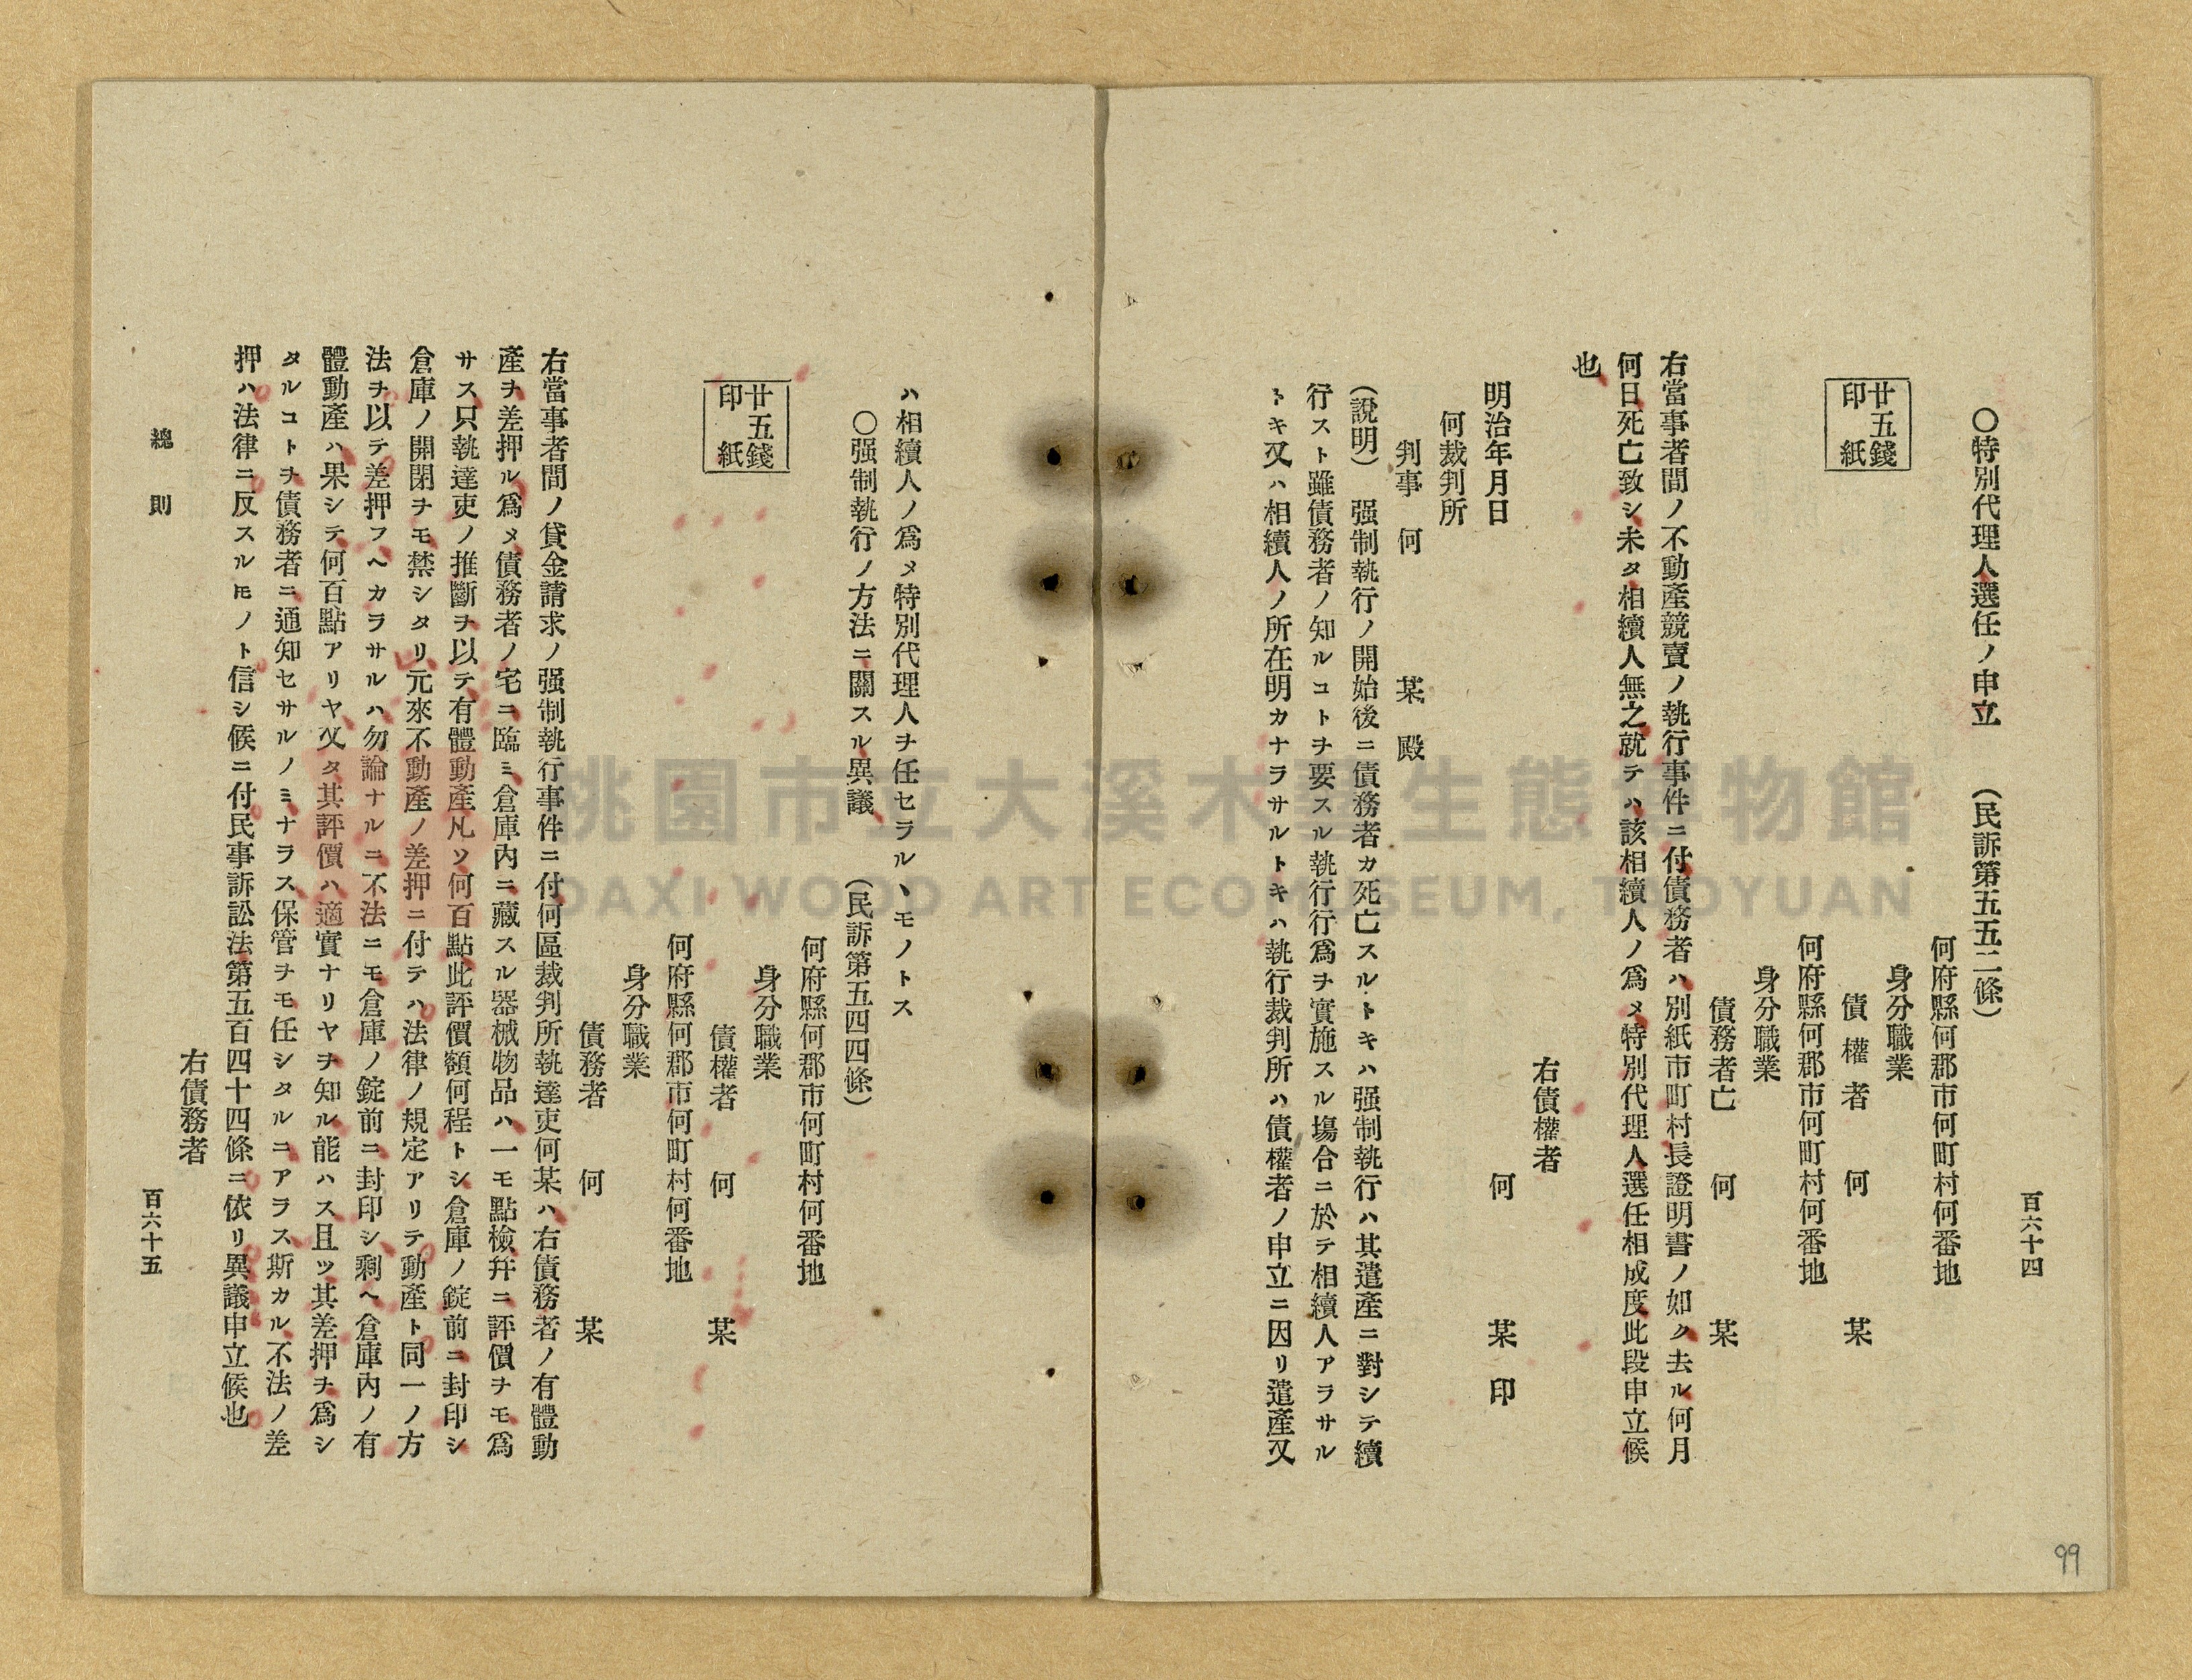 百六十四
〇特別代理人選任ノ申立　（民訴第五五二條）
何府縣何郡市何町村何番地
身分職業
廿五錢
印紙
債權者　何　某
何府縣何郡市何町村何番地
身分職業
債務者亡　何　某
右當事者間ノ不動產競賣ノ執行事件ニ付債務者ハ別紙市町村長證明書ノ如ク去ル何月
何日死亡致シ未タ相續人無之就テハ該相續人ノ爲メ特別代理人選任相成度此段申立候
也
右債權者
明治年月日　何　某　印
何裁判所
判事　何　某　殿
（說明）　强制執行ノ開始後ニ債務者カ死亡スルトキハ强制執行ハ其遺產ニ對シテ續
行スト雖債務者ノ知ルコトヲ要スル執行行爲ヲ實施スル塲合ニ於テ相續人アラサル
トキ又ハ相續人ノ所在明カナラサルトキハ執行裁判所ハ債權者ノ申立ニ因リ遺產又
ハ相續人ノ爲メ特別代理人ヲ任セラルヽモノトス
〇强制執行ノ方法ニ關スル異議　（民訴第五四四條）
何府縣何郡市何町村何番地
身分職業
廿五錢
印紙
債權者　何　某
何府縣何郡市何町村何番地
身分職業
債務者　何　某
右當事者間ノ貸金請求ノ强制執行事件ニ付何區裁判所執達吏何某ハ右債務者ノ有體動
產ヲ差押ル爲メ債務者ノ宅ニ臨ミ倉庫內ニ藏スル器械物品ハ一モ點檢幷ニ評價ヲモ爲
サス只執達吏ノ推斷ヲ以テ有體動產凡ソ何百點此評價額何程トシ倉庫ノ錠前ニ封印シ
倉庫ノ開閉ヲモ禁シタリ元來不動產ノ差押ニ付テハ法律ノ規定アリテ動產ト同一ノ方
法ヲ以テ差押フヘカラサルハ勿論ナルニ不法ニモ倉庫ノ錠前ニ封印シ剩ヘ倉庫內ノ有
體動產ハ果シテ何百點アリヤ又タ其評價ハ適實ナリヤヲ知ル能ハス且ツ其差押ヲ爲シ
タルコトヲ債務者ニ通知セサルノミナラス保管ヲモ任シタルニアラス斯カル不法ノ差
押ハ法律ニ反スルモノト信シ候ニ付民事訴訟法第五百四十四條ニ依リ異議申立候也
右債務者
總則
百六十五
99
桃園市立大溪木藝生態博物館
DAXI WOOD ART ECOMUSEUM, TAOYUAN